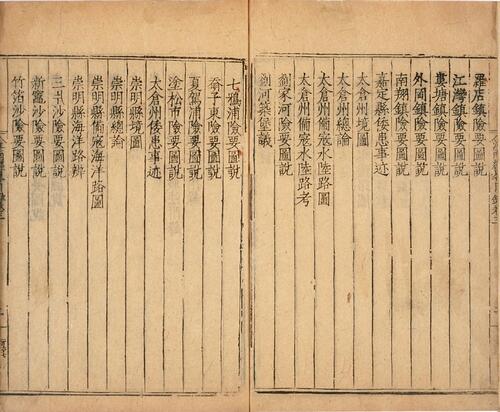 羅店鎮險要圖說
江灣鎮險要圖說
婁塘鎮險要圖說
外岡鎮險要圖說
南翔鎮險要圖說
嘉定縣倭患事迹
太倉州境圖
太倉州總論
太倉州備寇水陸路圖
太倉州備寇水陸路考
劉家河險要圖說
劉河築堡議
七鴉浦險要圖說
夏駕浦險要圖說
塗松市險要圖說
太倉州倭患事迹
崇明縣境圖
崇明縣總論
崇明縣備寇海洋路圖
崇明縣海洋路辨
三爿沙險要圖說
新竈沙險要圖說
竹箔沙險要圖說